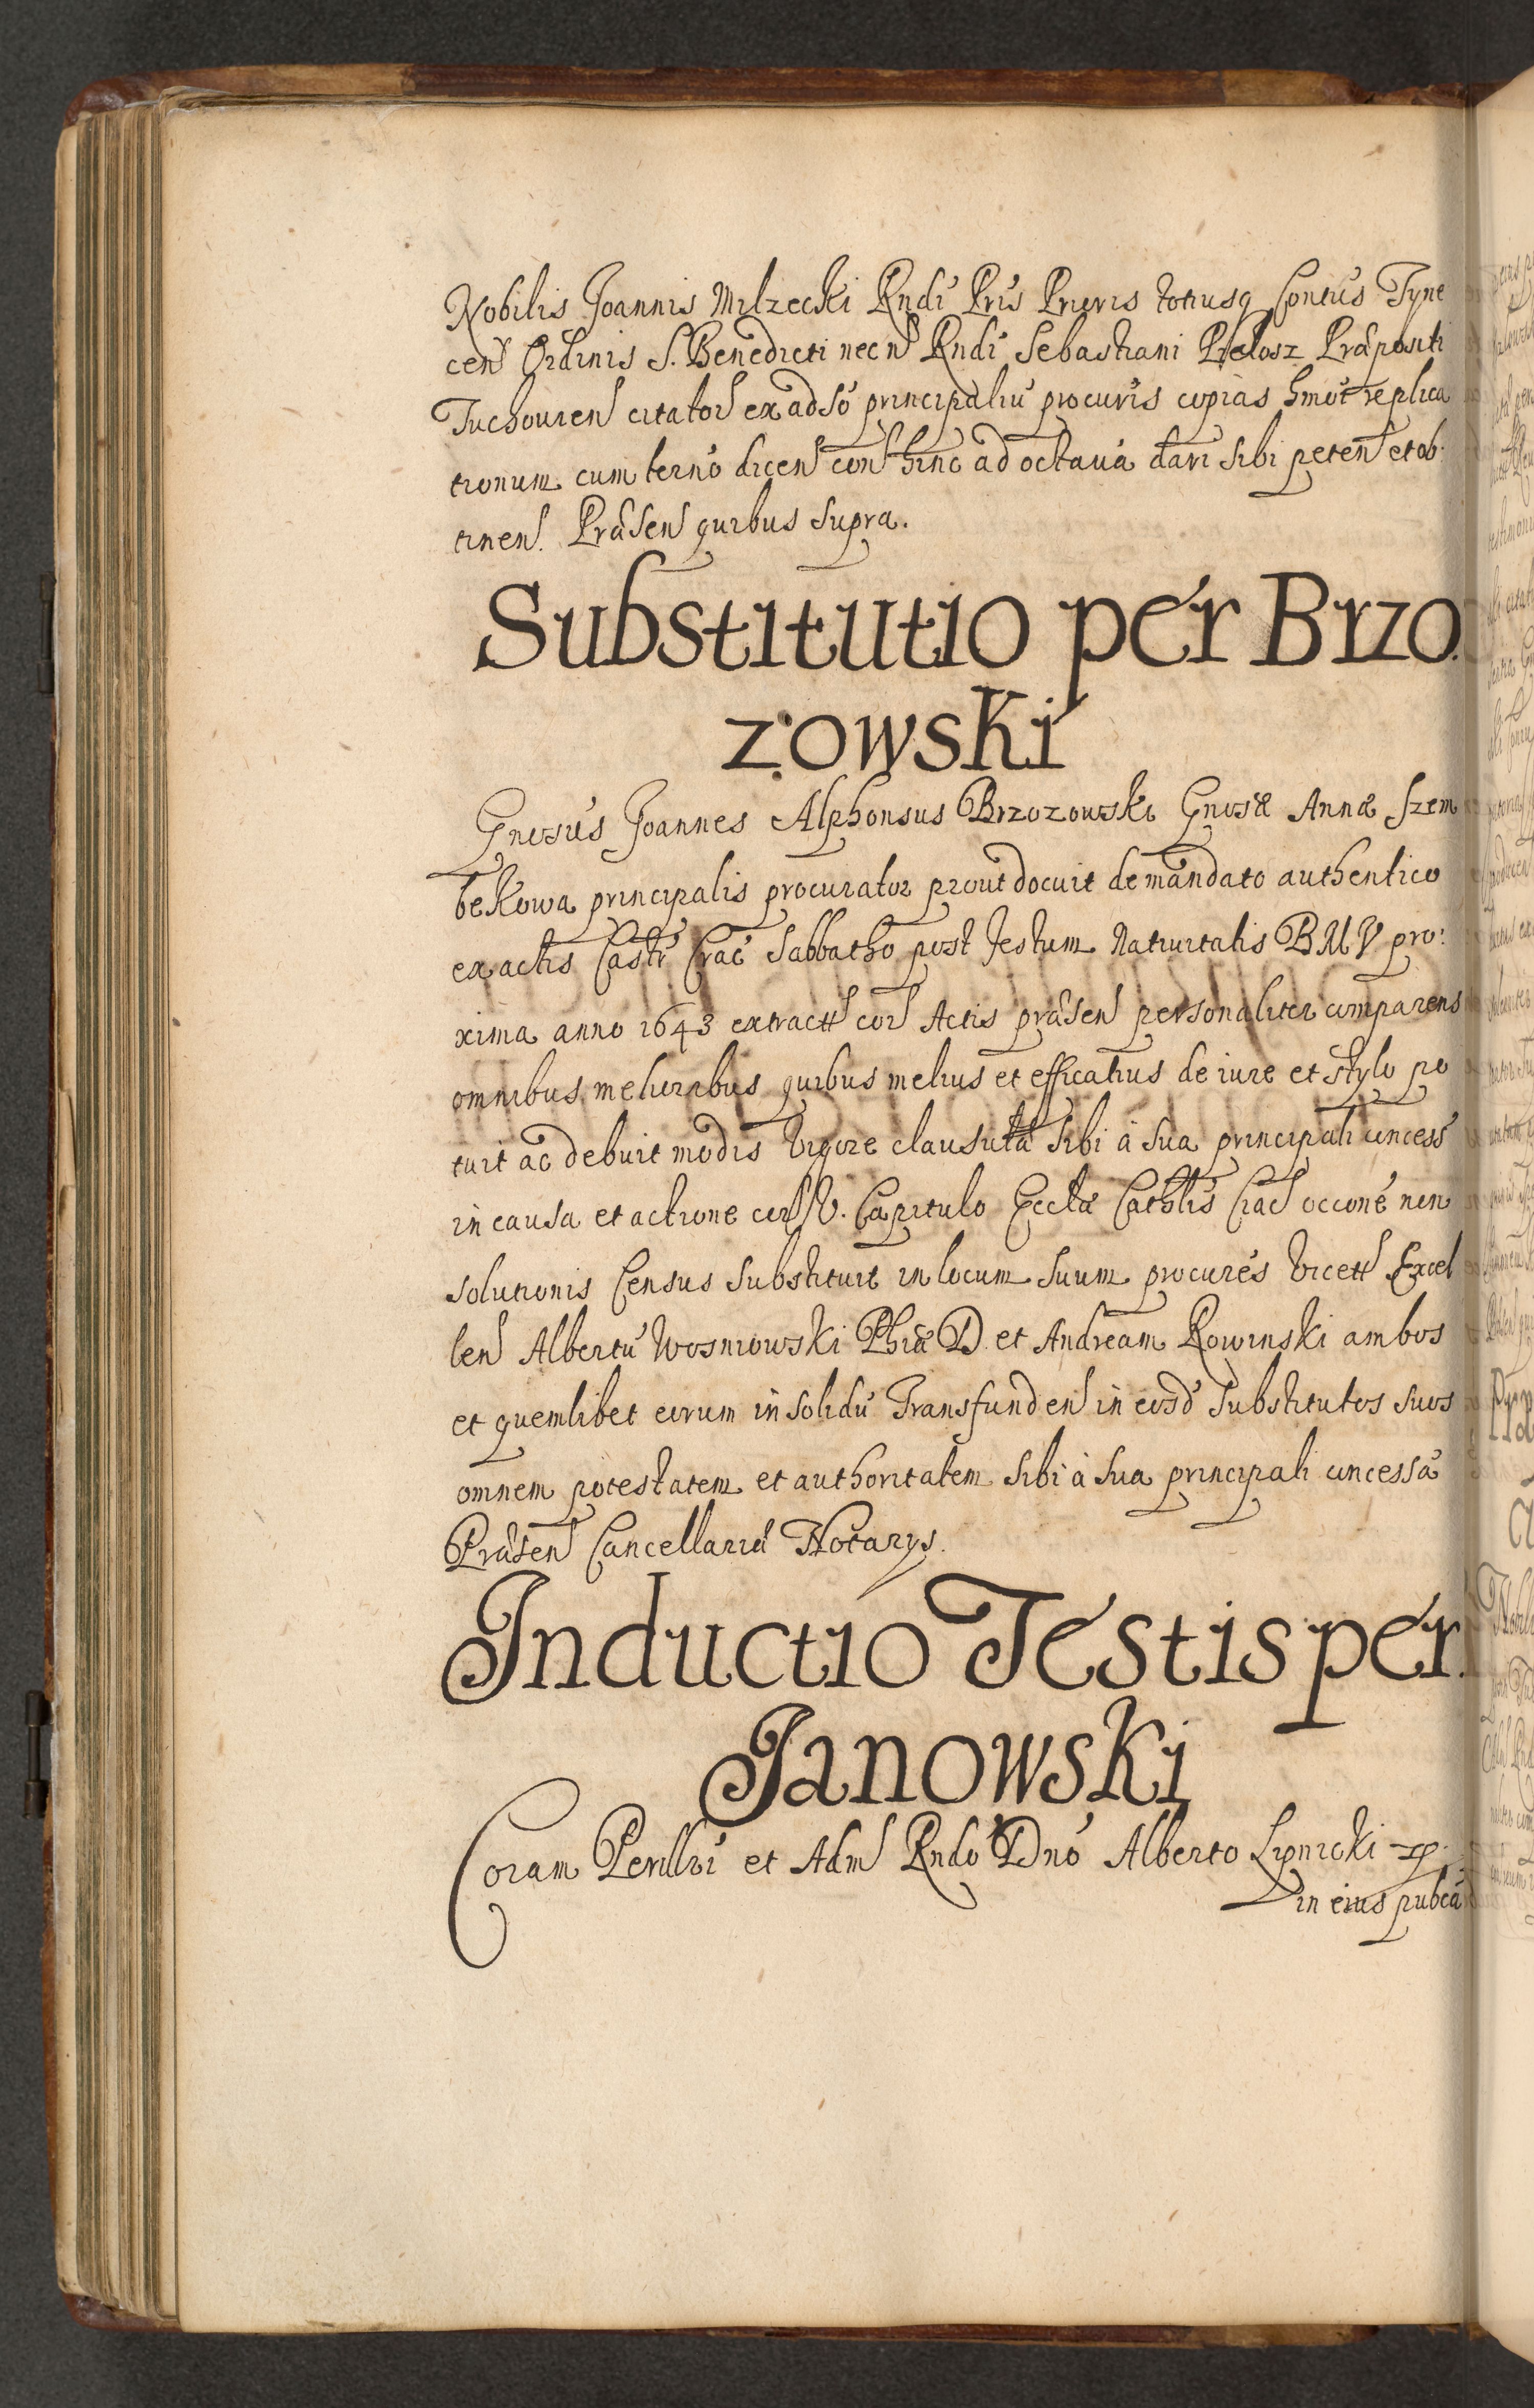 Nobilis Joannis Milzecki Rndi Pris Prioris totiusq Contus Tyne
cen Ordinis S. Benedicti necn Rndi Sebastiani Pielosz Præpositi
Tuchovien citator ex adso principaliu procuris copias hmoi replica
tionum cum termo dicen con hinc ad octava dari sibi peten et ob
tinen. Præsen quibus supra.
Substitutio per Brzo
zowski
Gnosus Joannes Alphonsus Brzozowski Gnosæ Annæ Szem
bekowa principalis procurator prout docuit de mandato authentico
ex actis Castr Crac Sabbatho post festum Nativitatis B M V pro:
xima anno 1643 extractt cor Actis præsen personaliter comparens
omnibus melioribus quibus melius et efficatius de iure et stylo po
tuit ac debuit modis vigore clausula sibi à sua principali concess
in causa et actione cor V. Capitulo Eccla Cathlis Crac occone non
solutionis Census substituit in locum suum procures vicett Excel
len Albertu Wosniowski Phiæ D. et Andream Rowinski ambos
et quemlibet eorum in solidu Transfunden in eosd substitutos suos
omnem potestatem et authoritatem sibi à sua principali concessa
Præsen Cancellariæ Notarys.
Inductio Testis per
Janowski
Coram Perillri et Adm Rndo Dno Alberto Lipnicki
in eius pubca